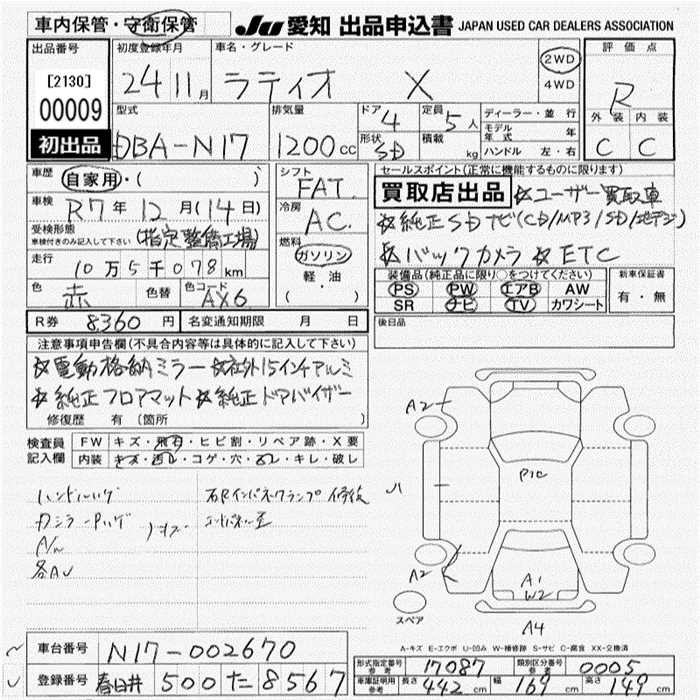 車内保管・守衛保管 JU 愛知 出品申込書 JAPAN USED CAR DEALERS ASSOCIATION
出品番号 [2130] 00009 初出品
初度登録年月 24 11月
車名・グレード ラティオ X
2WD 4WD
評価点 R
外装 内装 C C
型式 DBA-N17
排気量 1200cc
ドア 4 定員 5人
形状 SD 積載 kg
ディーラー・並行
モデル年式 年
ハンドル 左・右
車歴 自家用・( )
車検 R7年12月(14日)
受検形態 車検付きのみ記入して下さい (指定整備工場)
走行 10万5千078km
色 赤 色替 色コード AX6
シフト FAT
冷房 AC
燃料 ガソリン 軽・油 ( )
セールスポイント(正常に機能するものに限ります)
買取店出品 ☆ユーザー買取車
☆純正SDナビ(CD/MP3/SD/地デジ)
☆バックカメラ ☆ETC
装備品(純正品に限り○をつけてください)
PS PW エアB AW
SR ナビ TV カワシート
新車保証書 有・無
R券 8360円 名変通知期限 月 日
後日品
注意事項申告欄(不具合内容等は具体的に記入して下さい)
☆電動格納ミラー ☆社外15インチアルミ
☆純正フロアマット ☆純正ドアバイザー
修復歴 有(箇所 )
検査員記入欄
FW キズ・飛石・ヒビ割・リペア跡・X要
内装 キズ・汚レ・コゲ・穴・スレ・キレ・破レ
ハンドルハゲ
各AU
A2
PIC
A2
A1
W2
A4
スペア
A-キズ E-エクボ U-凹み W-補修跡 S-サビ C-腐食 XX-交換済
車台番号 N17-002670
登録番号 春日井 500 た 8567
形式指定番号 参考 17087 類別区分番号 参考 0005
車庫証明用 参考 長さ 442cm 幅 169cm 高さ 149cm